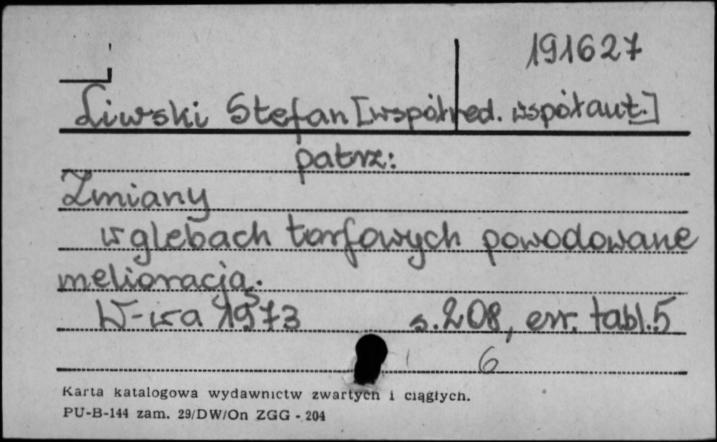 191627
Liwski Stefan [współred. współaut.]
patrz:
Zmiany
w glebach torfowych powodowane
melioracją.
W-wa 1973 s. 208, err. tabl. 5
6
Karta katalogowa wydawnictw zwartych i ciągłych.
PU-B-144 zam. 29/DW/On ZGG - 204